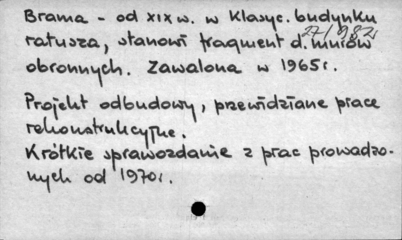 Brama - od XIX w. w klasyc. budynku
27/982
ratusza, stanowi fragment d. murów
obronnych. Zawalona w 1965 r.
Projekt odbudowy, przewidziane prace
rekonstrukcyjne.
Krótkie sprawozdanie z prac prowadzo-
nych od 1970 r.